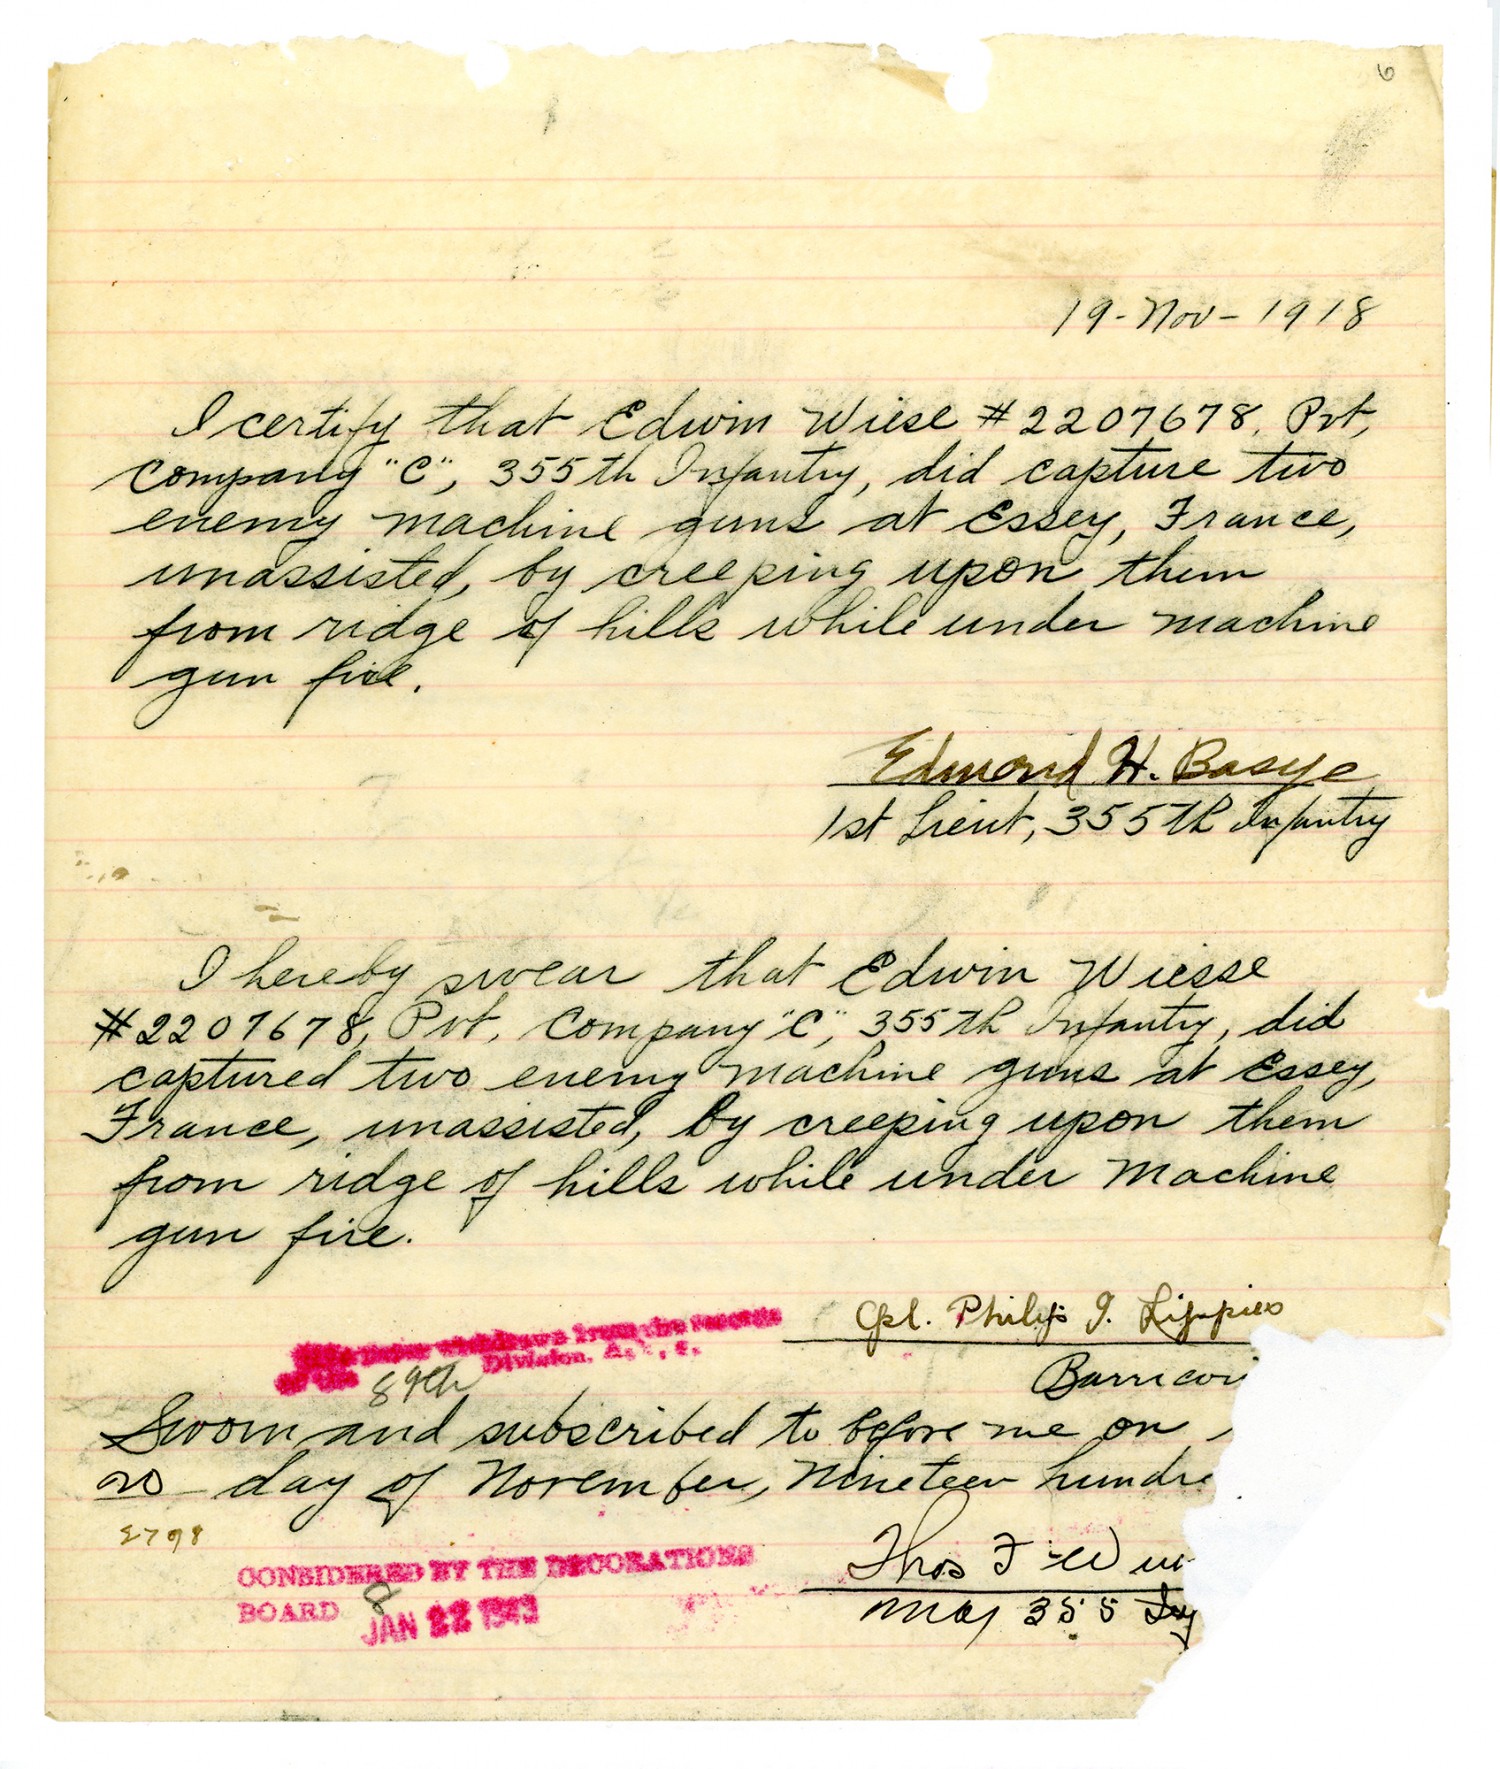 6
19-Nov-1918
I certify that Edwin Wiese #2207678, Pvt,
Company "C", 355th Infantry, did capture two
enemy machine guns at Essey, France,
unassisted, by creeping upon them
from ridge of hills while under machine
gun fire.
Edmond H. Basye
1st Lieut, 355th Infantry
I hereby swear that Edwin Wiesse
#2207678, Pvt. Company "C", 355th Infantry, did
captured two enemy machine guns at Essey,
France, unassisted, by creeping upon them
from ridge of hills while under machine
gun fire.
Cpl. Philip J.
from the records
of the 89th Division, A.E.F.
Sworn and subscribed to before me on
20 day of November, Nineteen hundre
2798
CONSIDERED BY THE DECORATIONS
BOARD JAN 22 1943
Thos F W
Maj 355 Inf